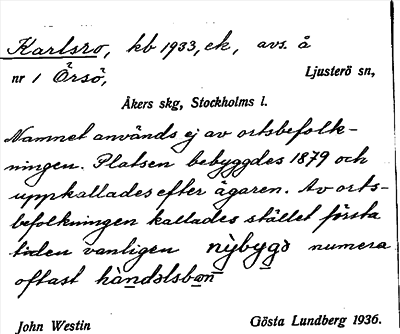 Karlsro, kb 1933, ek, avs. å
nr 1 Örsö,
Ljusterö sn,
Åkers skg, Stockholms l.
Namnet används ej av ortsbefolk-
ningen. Platsen bebyggdes 1879 och
uppkallades efter ägaren. Av orts-
befolkningen kallades stället första
tiden vanligen nỳbygə numera
oftast hàndəlsbon
John Westin
Gösta Lundberg 1936.